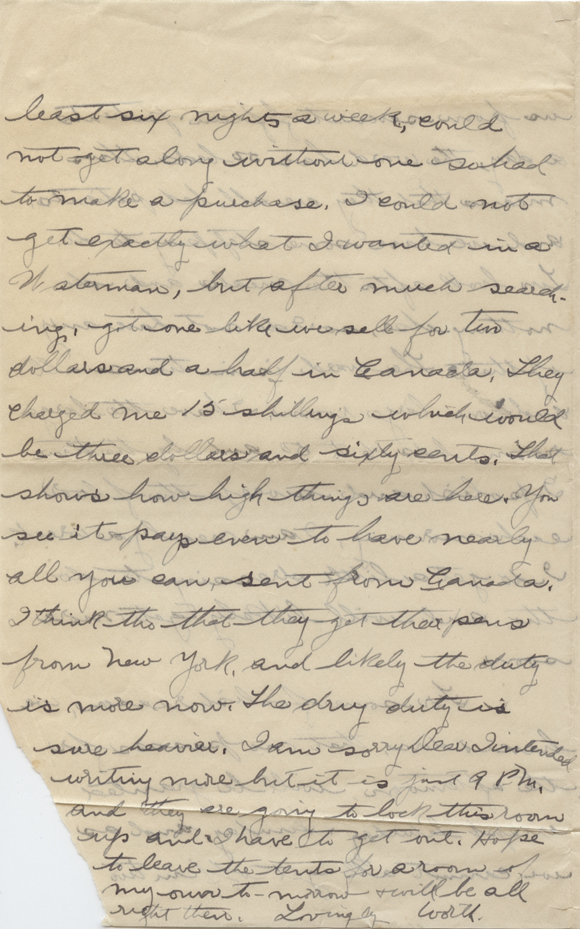 least six nights a week, could
not get along without one so had
to make a purchase. I could not
get exactly what I wanted in a
Waterman, but after much search-
ing, got one like we sell for two
dollars and a half in Canada. They
charged me 15 shillings which would
be three dollars and sixty cents. That
shows how high things are here. You
see it pays even to have nearly
all you can, sent from Canada.
I think tho that they get their pens
from New York, and likely the duty
is more now. The drug duty is
sure heavier. I am sorry Dear I intended
writing more but it is just 9 P.M.
and they are going to lock this room
up and I have to get out. Hope
to leave the tents for a room of
my own to-morrow & will be all
right then. Lovingly Worth.